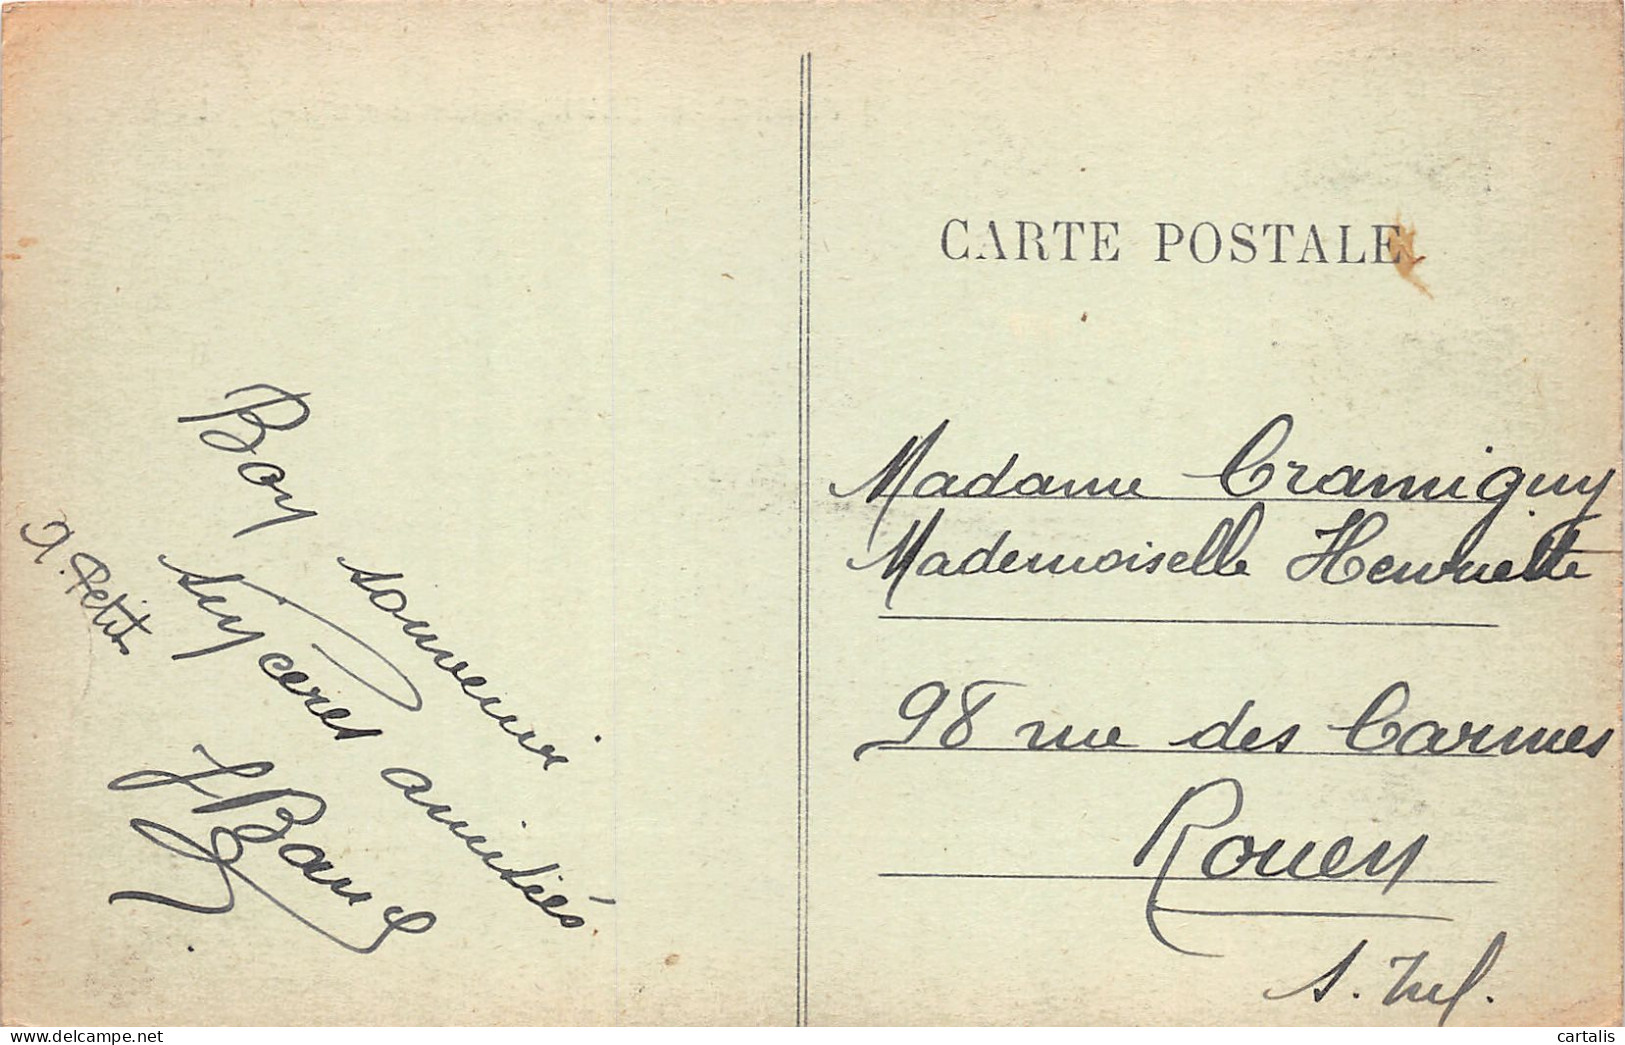 CARTE POSTALE
Bon souvenir
sincères amitiés
A. Petit
Madame Cramiguy
Mademoiselle Henriette
98 rue des Carmes
Rouen
S. Inf.
cartalis
www.delcampe.net